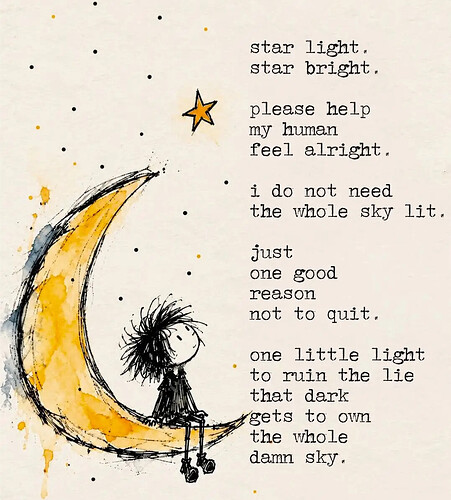 star light.
star bright.
please help
my human
feel alright.
i do not need
the whole sky lit.
just
one good
reason
not to quit.
one little light
to ruin the lie
that dark
gets to own
the whole
damn sky.